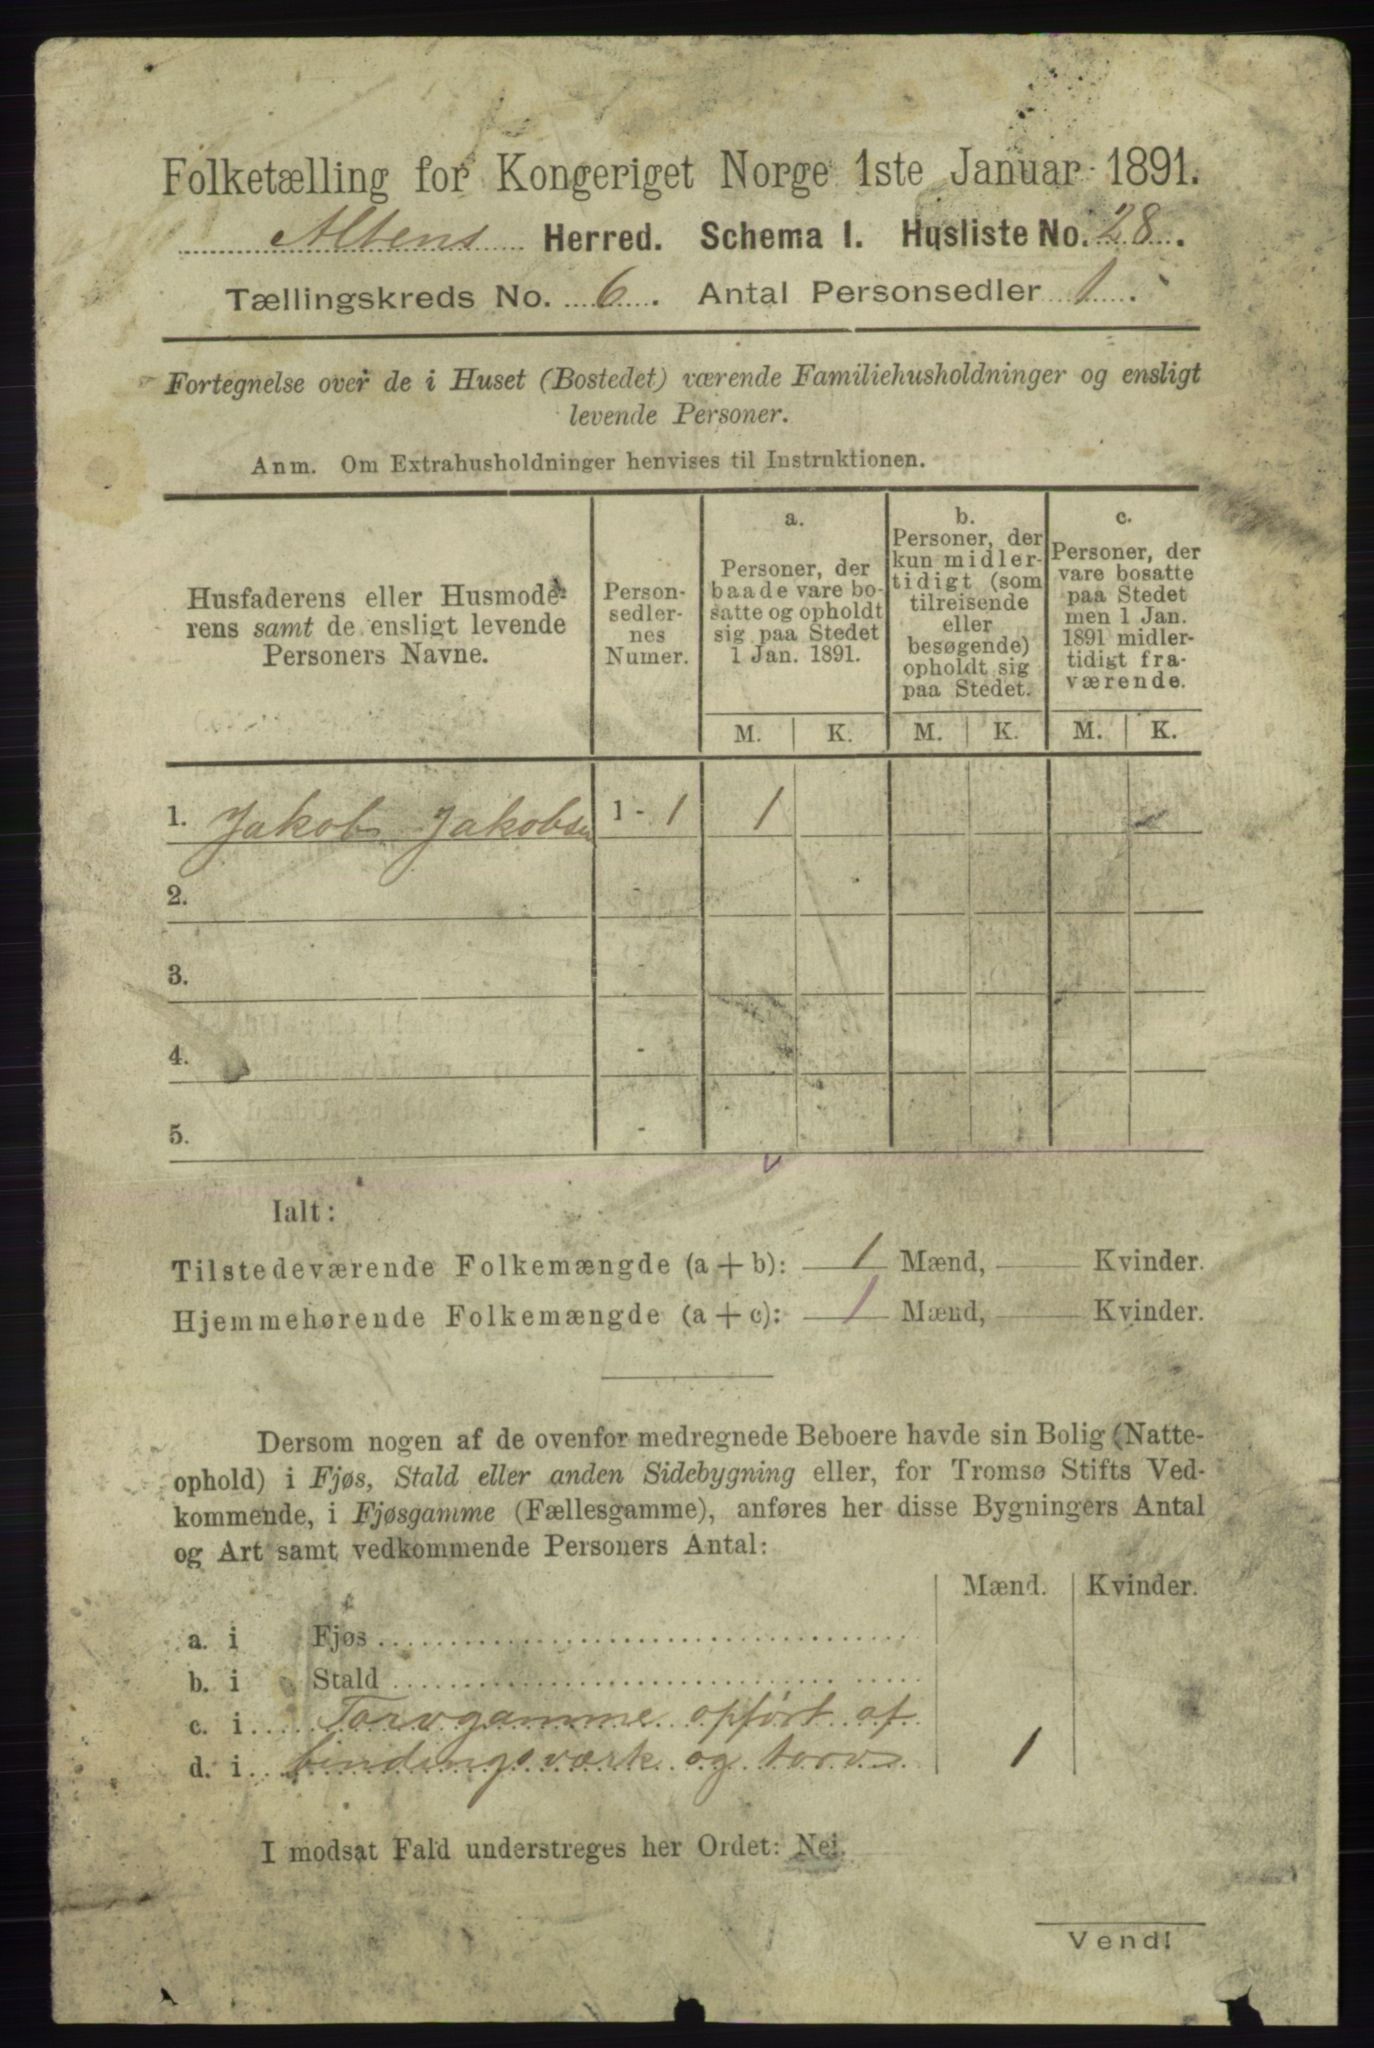 Folketælling for Kongeriget Norge 1ste Januar 1891.
Altens Herred. Schema I. Husliste No. 28.
Tællingskreds No. 6. Antal Personsedler 1.
Fortegnelse over de i Huset (Bostedet) værende Familiehusholdninger og ensligt
levende Personer.
Anm. Om Extrahusholdninger henvises til Instruktionen.
Husfaderens eller Husmode-
rens samt de ensligt levende
Personers Navne.
Person-
sedler-
nes
Numer.
a.
Personer, der
baade vare bo-
satte og opholdt
sig paa Stedet
1 Jan. 1891.
b.
Personer, der
kun midler-
tidigt (som
tilreisende
eller
besøgende)
opholdt sig
paa Stedet.
c.
Personer, der
vare bosatte
paa Stedet
men 1 Jan.
1891 midler-
tidigt fra-
værende.
M. K. M. K. M. K.
1. Jakob Jakobsen 1 - 1 1
2. -
3. -
4. -
5. -
Ialt:
Tilstedeværende Folkemængde (a + b): 1 Mænd, Kvinder.
Hjemmehørende Folkemængde (a + c): 1 Mænd, Kvinder.
Dersom nogen af de ovenfor medregnede Beboere havde sin Bolig (Natte-
ophold) i Fjøs, Stald eller anden Sidebygning eller, for Tromsø Stifts Ved-
kommende, i Fjøsgamme (Fællesgamme), anføres her disse Bygningers Antal
og Art samt vedkommende Personers Antal:
Mænd. Kvinder.
a. i Fjøs
b. i Stald
c. i Torvgamme opført af
d. i bindingsværk og torv 1
I modsat Fald understreges her Ordet: Nei.
Vend!